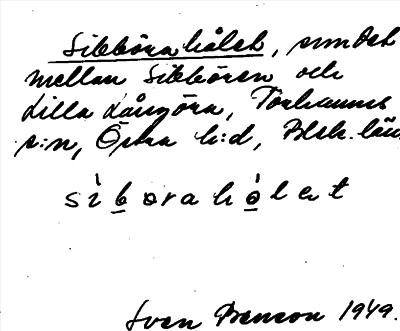 Sibböra hålet, sundet
mellan Sibbören och
Lilla Långöra, Torhamns
s:n, Östra h:d, Blek. län
siborahòlet
Sven Benson 1949.